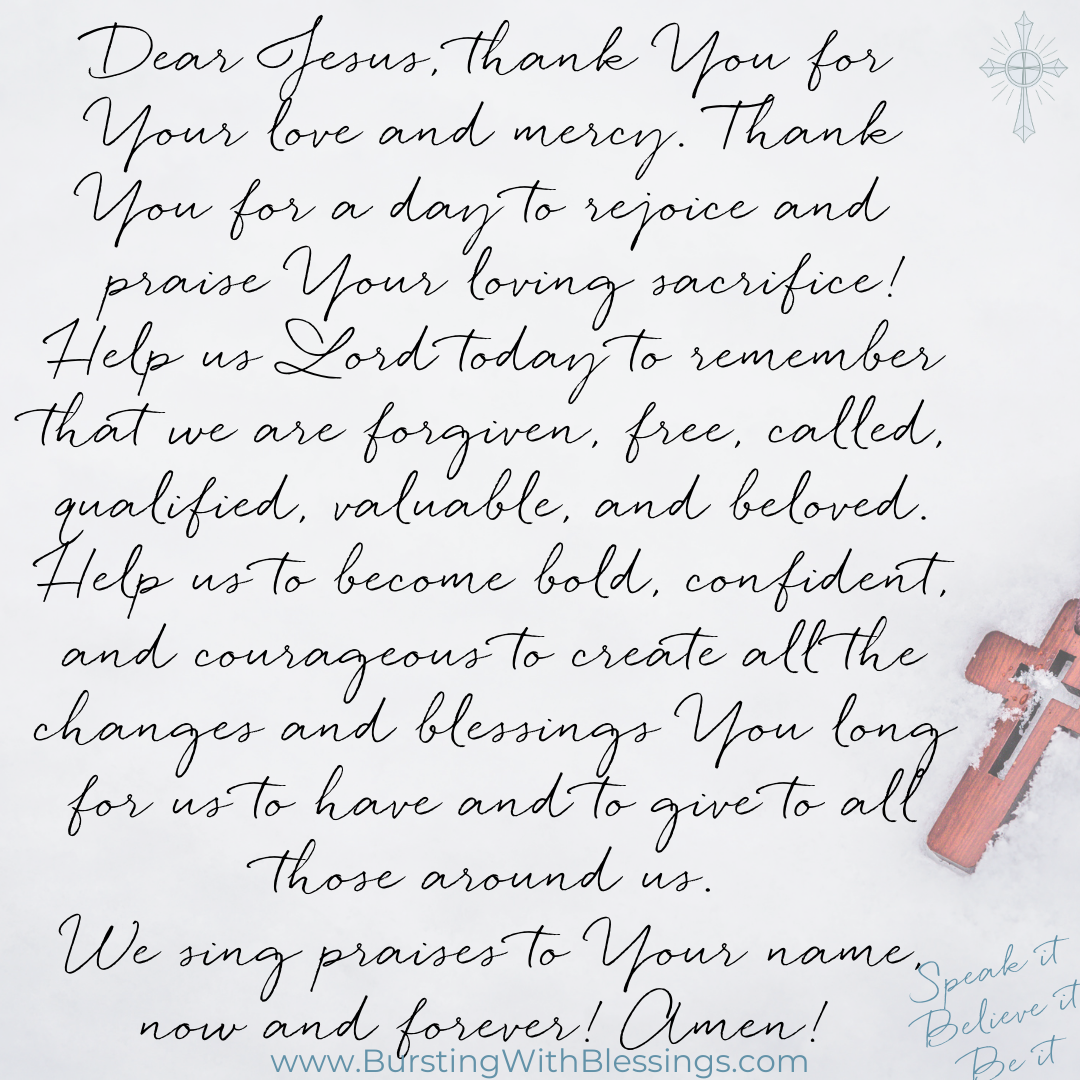 Dear Jesus, thank You for
Your love and mercy. Thank
You for a day to rejoice and
praise Your loving sacrifice!
Help us Lord today to remember
that we are forgiven, free, called,
qualified, valuable, and beloved.
Help us to become bold, confident,
and courageous to create all the
changes and blessings You long
for us to have and to give to all
those around us.
We sing praises to Your name,
now and forever! Amen!
Speak it
Believe it
Be it
www.BurstingWithBlessings.com